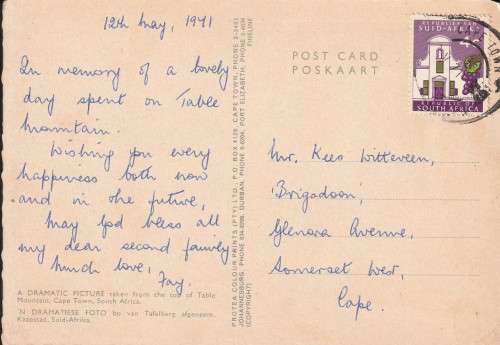 12th May, 1971
In memory of a lovely
day spent on Table
Mountain.
Wishing you every
happiness both now
and in the future,
May God bless all
my dear second family
Much love,
Fay.
A DRAMATIC PICTURE taken from the top of Table
Mountain, Cape Town, South Africa.
'N DRAMATIESE FOTO bo van Tafelberg afgeneem.
Kaapstad, Suid-Afrika.
PROTEA COLOUR PRINTS (PTY) LTD. P.O. BOX 4129, CAPE TOWN, PHONE 2-3433
JOHANNESBURG, PHONE DURBAN, PHONE PORT ELIZABETH, PHONE
(COPYRIGHT)
POST CARD
POSKAART
REPUBLIEK VAN
SUID-AFRIKA
REPUBLIC OF
SOUTH AFRICA
Mr. Kees Witteveen,
'Brigadoon',
Glenora Avenue,
Somerset West,
Cape.